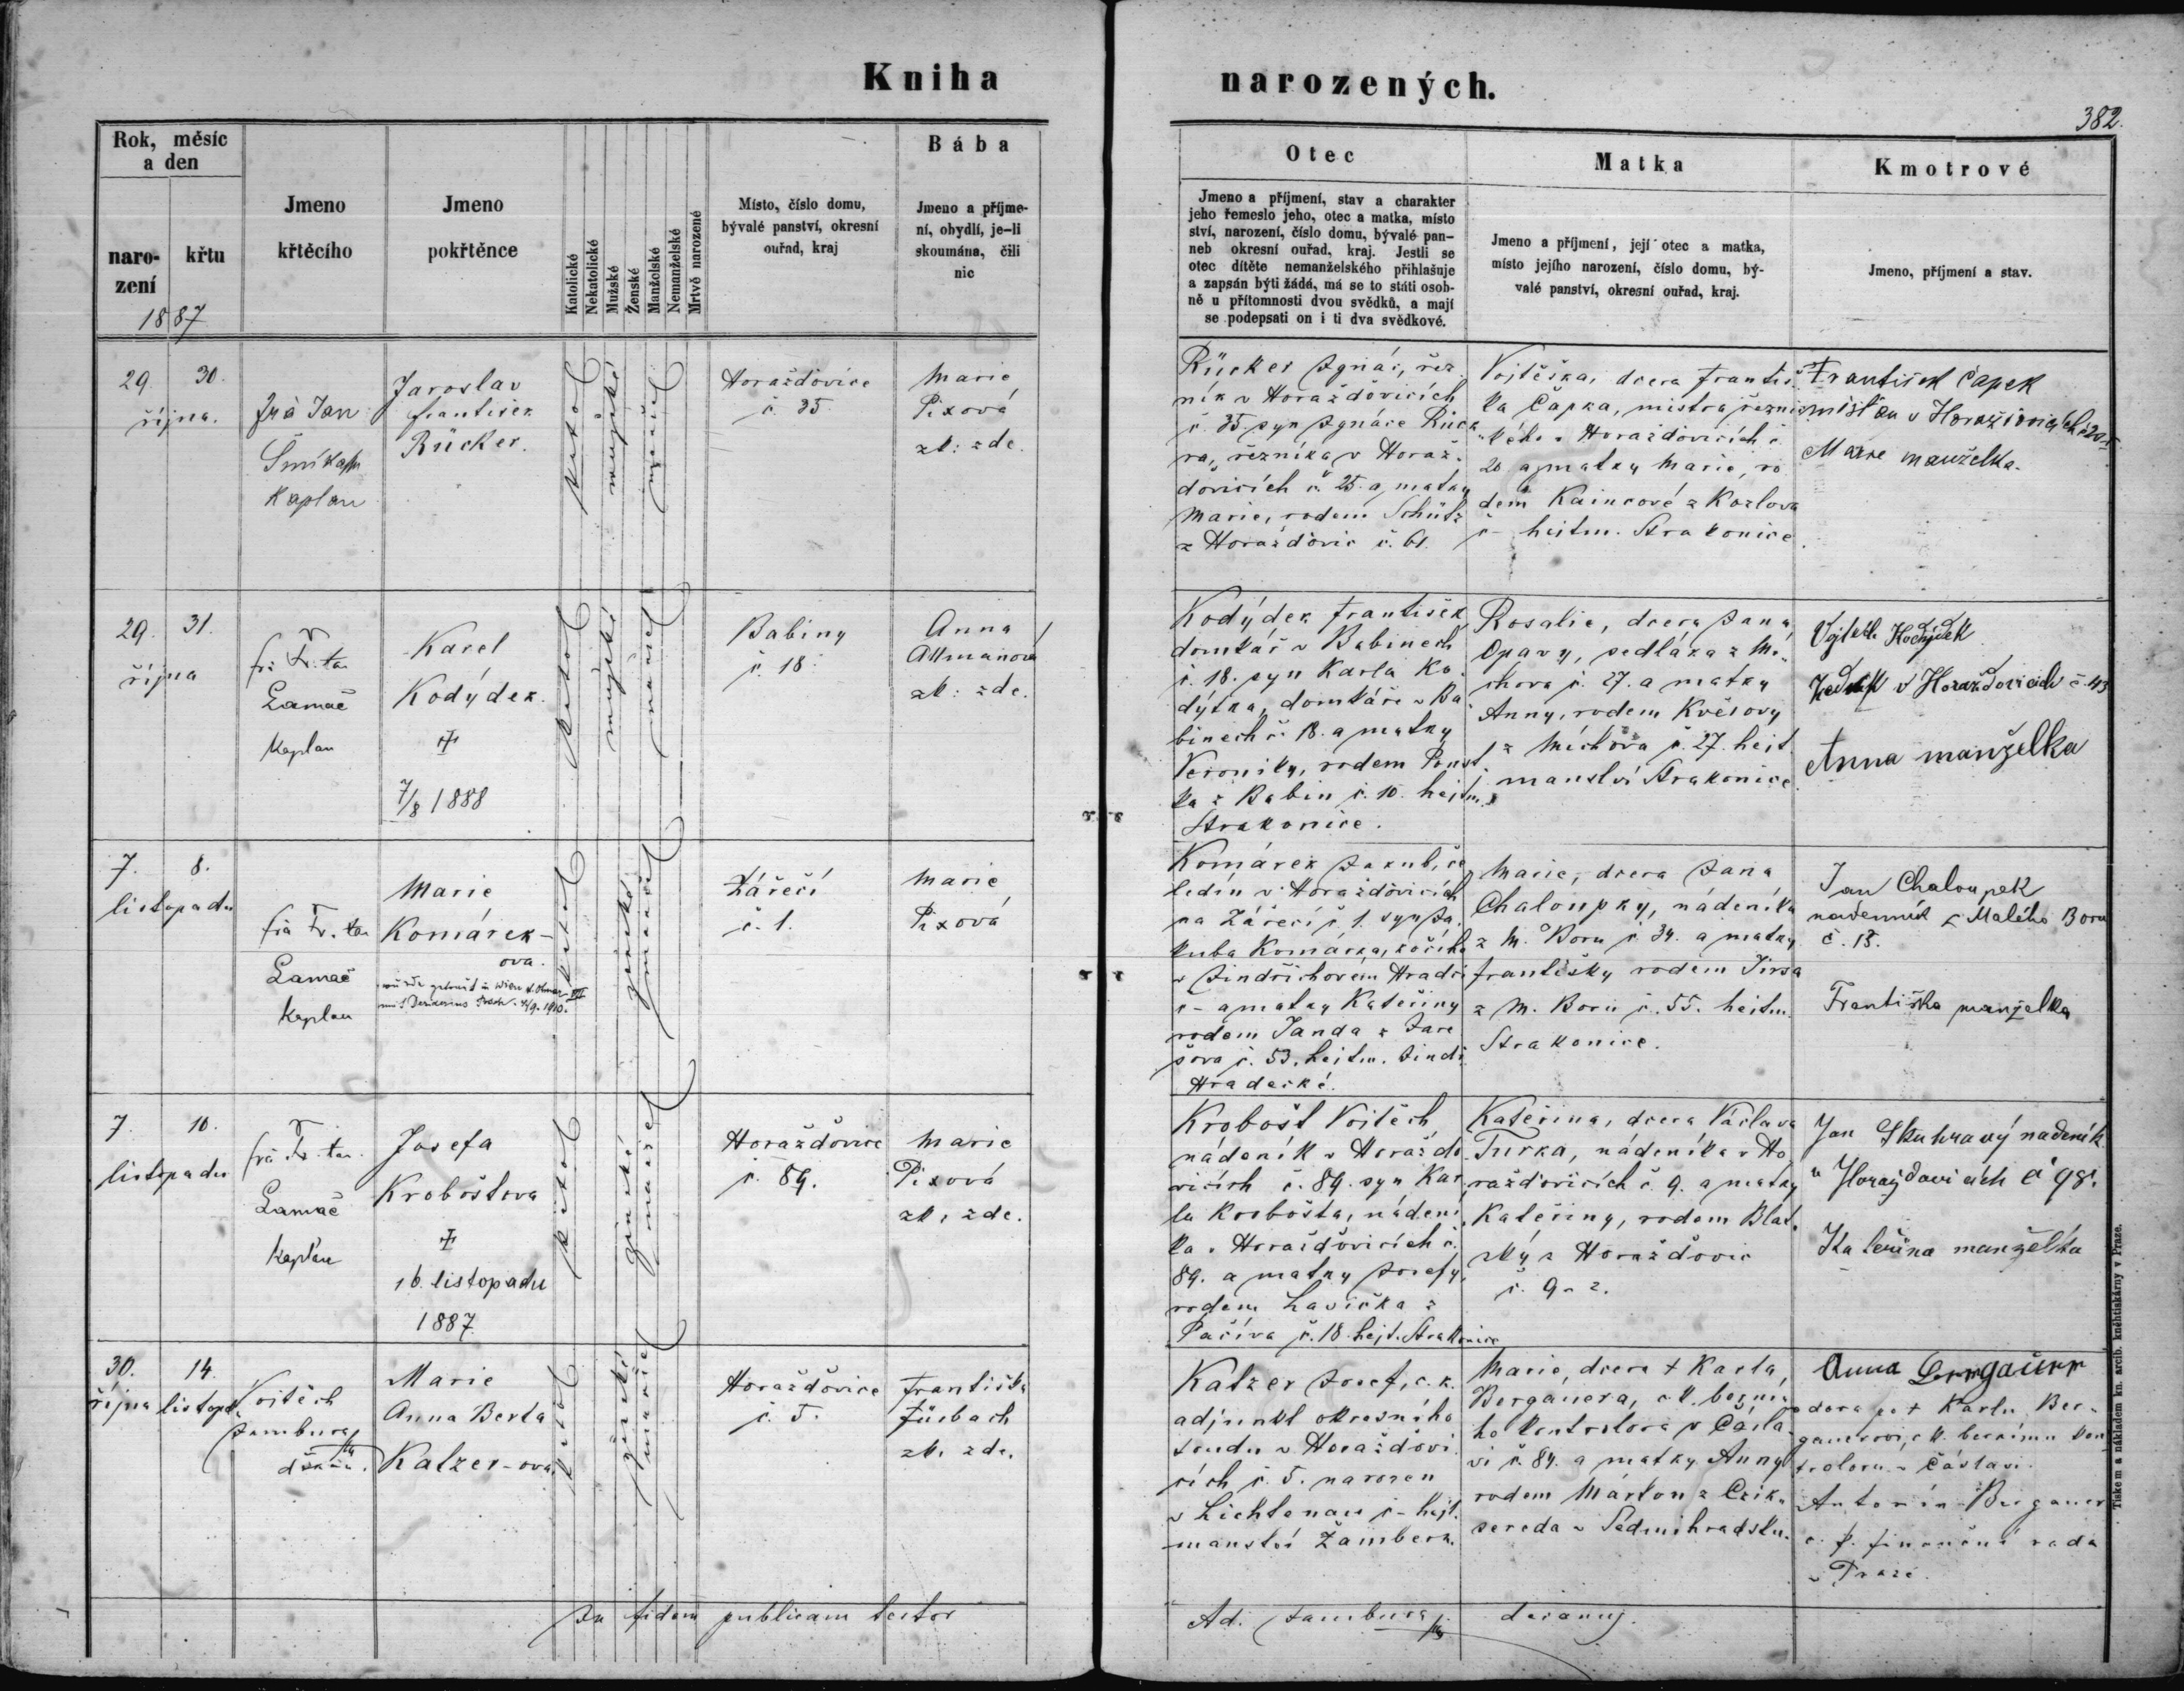 Kniha narozených.
382.
Rok, měsíc
a den
naro-
zení
křtu
1887
Jmeno
křtěcího
Jmeno
pokřtěnce
Katolické
Nekatolické
Mužské
Ženské
Manželské
Nemanželské
Mrtvě narozené
Místo, číslo domu,
bývalé panství, okresní
ouřad, kraj
Bába
Jmeno a příjme-
ní, obydlí, je-li
skoumána, čili
nic
Otec
Jmeno a příjmení, stav a charakter
jeho řemeslo jeho, otec a matka, místo
ství, narození, číslo domu, bývalé pan-
neb okresní ouřad, kraj. Jestli se
otec dítěte nemanželského přihlašuje
a zapsán býti žádá, má se to státi osob-
ně u přítomnosti dvou svědků, a mají
se podepsati on i ti dva svědkové.
Matka
Jmeno a příjmení, její otec a matka,
místo jejího narození, číslo domu, bý-
valé panství, okresní ouřad, kraj.
Kmotrové
Jmeno, příjmení a stav.
29. 30.
října.
Jan
Kaplan
Jaroslav
František
Rücker.
katol
mužské
Horažďovice
č. 35.
Marie
Pixová
zk: zde.
Rücker Ignác, řez
ník v Horažďovicích
č. 35 syn Ignáce Rück
ra, řezníka v Horaž-
ďovicích č. 25. a matky
Marie, rodem Schütz
z Horažďovic č. 61.
Vojtěška, dcera Františ
ka Čapka, mistra řezni
ckého v Horažďovicích č.
20 a matky Marie, ro
dem Kaincové z Kozlova
č - hejtm. Strakonice.
František Čapek
v Horažďovicích č 20
Marie manželka.
29. 31.
října
Lamač
Kaplan
Karel
Kodýdek.
7/8 1888
katol
mužské
Babiny
č. 18.
Anna
Altmanová
zk: zde.
Kodýdek František
domkář v Babinech
č. 18. syn Karla Ko
dýdka, domkáře v Ba
binech č. 18. a matky
Veroniky, rodem
ka z Babin č. 10. hejtm.
Strakonice.
Rosalie, dcera Jana
Opavy, sedláka z Mí-
chova č. 27. a matky
Anny, rodem Květovy
z Míchova č. 27. hejt
manství Strakonice
Kodýdek
v Horažďovicích č. 43
Anna manželka
7. 8.
listopadu
Lamač
Kaplan
Marie
Komárek-
ova.
katol
ženské
Zářečí
č. 1.
Marie
Pixová
Komárek Jakub, če
ledín v Horažďovicích
na Zářečí č. 1. syn Ja
kuba Komárka, kočího
v Jindřichovém Hradci
č - a matky Kateřiny
rodem Janda z Jare
šova č. 53. hejtm. Jindř
Hradecké.
Marie, dcera Jana
Chaloupky, nádeníka
z M. Boru č. 34. a matky
Františky rodem Jirsa
z M. Boru č. 55. hejtm.
Strakonice.
Jan Chaloupek
nádenník z Malého Boru
č. 15.
Františka manželka
7. 10.
listopadu
Lamač
kaplan
Josefa
Kroboštova
16. listopadu
1887
katol
ženské
Horažďovice
č. 89.
Marie
Pixová
zk. zde.
Krobošt Vojtěch
nádeník v Horažďo
vicích č. 89. syn Kar
la Krobošta, nádení
ka v Horažďovicích č.
89. a matky Josefy,
rodem Lavička z
Pačiva č. 18. hejt. Strakonice
Kateřina, dcera Václava
Turka, nádeníka v Ho
ražďovicích č. 9. a matky
Kateřiny, rodem Blat-
ský z Horažďovic
č. 9 -
Jan Skuhravý nádeník
v Horažďovicích č 98.
Kateřina manželka
30. 14.
října listopadu
Vojtěch
Jambura
Marie
Anna Berta
Kalzer-ova.
katol
ženské
Horažďovice
č. 5.
Františka
zk. zde.
Kalzer Josef, c. k.
adjunkt okresního
soudu v Horažďovi
cích č. 5. narozen
v Lichtenau č - hejt-
manství Žamberk.
Marie, dcera + Karla
Berganera, c. k. berní
ho kontrolora v Čásla
vi č. 84. a matky Anny
rodem Márton z Czik-
sereda v Sedmihradsku.
Anna Berganer
vdova po + Karlu Ber-
ganerovi, c. k. berním kon
troloru v Čáslavi.
Antonín Berganer
c. k. finanční rada
v Praze.
In fidem publicam testor
Ad. Jambura
Tiskem a nákladem kn. arcib. kněhtiskárny v Praze.